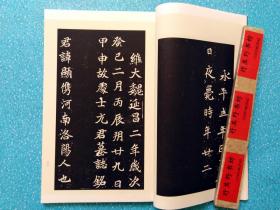 永平五年
日夜薨時年廿二
維大魏延昌二年歲次
癸巳二月丙辰朔廿九日
甲申故處士元君墓誌銘
君諱顯儁河南洛陽人也